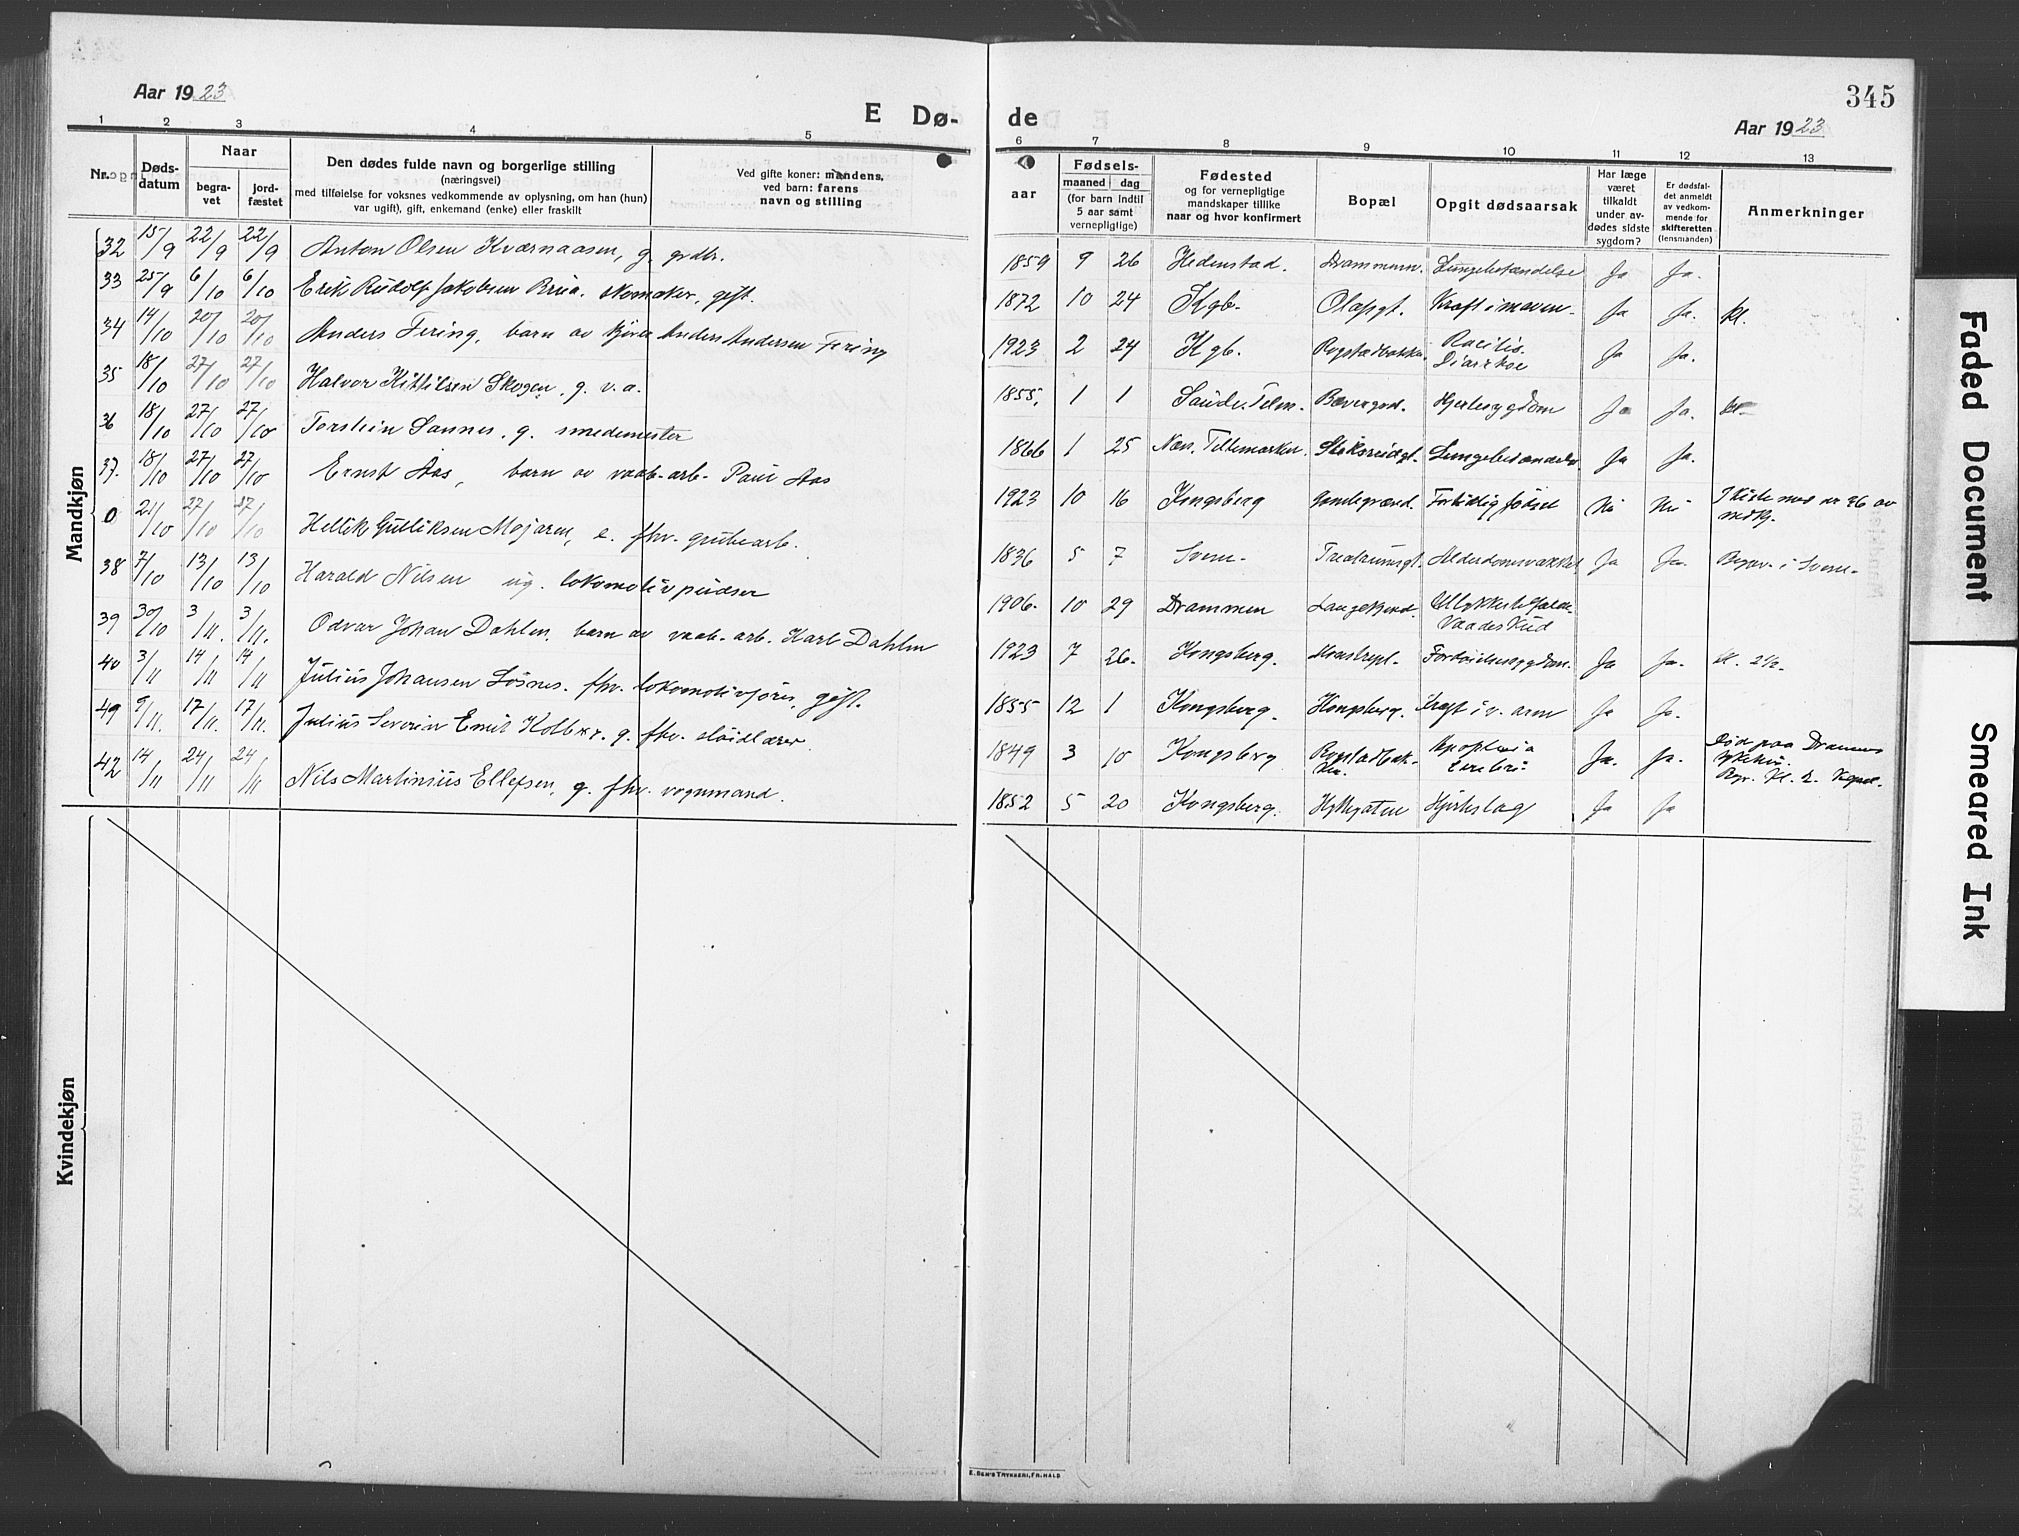 Aar 1923
E Dø-
de
345
Aar 1923
1 2 3 4 5
6 7 8 9 10 11 12 13
Nr.
Døds-
datum
Naar
begra-
vet
jord-
fæstet
Den dødes fulde navn og borgerlige stilling
(næringsvei)
med tilføielse for voksnes vedkommende av oplysning, om han (hun)
var ugift), gift, enkemand (enke) eller fraskilt
Ved gifte koner: mandens,
ved barn: farens
navn og stilling
aar
Fødsels-
maaned dag
(for barn indtil
5 aar samt
vernepligtige)
Fødested
og for vernepligtige
mandskaper tillike
naar og hvor konfirmert
Bopæl
Opgit dødsaarsak
Har læge
været
tilkaldt
under av-
dødes sidste
sygdom?
Er dødsfal-
det anmeldt
av vedkom-
mende for
skifteretten
(lensmanden)
Anmerkninger
Mandkjøn
32 15/9 22/9 22/9 Anton Olsen Kværnaasen, g. grdbr.
1859 9 26 Hedenstad. Drammen. Lungebetændelse Ja Ja.
33 25/9 6/10 6/10 Erik Rudolf Jakobsen Brua. gift.
1872 10 24 Kgb. Olafsgt. Kræft i maven. Ja Ja. kl.
34 14/10 20/10 20/10 Anders Fering, barn av Anders Andersen Fering
1923 2 24 Kgb. Rogstadbakken Racitis. Diarrhoe Ja Ja.
35 18/10 27/10 27/10 Halvor Kittilsen Skogen, g. v. a.
1855, 1 1 Saude. Telm. Bævergrd. Hjertesygdom Ja Ja. kl.
36 18/10 27/10 27/10 Torstein Sannes, g. smedemester
1866 1 25 Telemarken. Lungebetændelse Ja Ja.
37. 18/10 27/10 27/10 Ernst Aas, barn av vaab.-arb. Paul Aas
1923 10 16 Kongsberg Fortidlig fødsel Nei Nei I kiste med nr 36 av mdkj.
0 21/10 27/10 27/10 Hellik Gulliksen Mojaren, e. fhv. grubearb.
1836 5 7 Svene. Alderdomssvækkel. Ja Ja. Begrav. i Svene.
38 7/10 13/10 13/10 Harald Nilsen ug. lokomotivpudser
1906. 10 29 Drammen Ulykkestilfælde. Vaadeskud
39 30/10 3/11. 3/11. Odvar Johan Dahlen. barn av vaab.-arb. Karl Dahlen
1923 7 26. Kongsberg. Ja Ja. kl. 2½.
40 3/11 14/11 14/11 Julius Johansen Løsnes. fhv. lokomotivfører, gift.
1855 12 1 Kongsberg. Kongsberg. Kræft i v. arm Ja Ja.
49 9/11. 17/11. 17/11. Julius Severin Emil Kolberg. g. fhv. sløidlærer
1849 3 10 Kongsberg Rogstadbakken. Apoplexia cerebri Ja. Ja. Død paa Drammens sykehus.
42 14/11 24/11 24/11 Nils Martinius Ellefsen, g. fhv. vognmand.
1852 5 20 Kongsberg. Hyttegaten Hjerteslag Ja Ja
Kvindekjøn
E. SEM'S TRYKKERI, FR.HALD
Faded Document
Smeared Ink